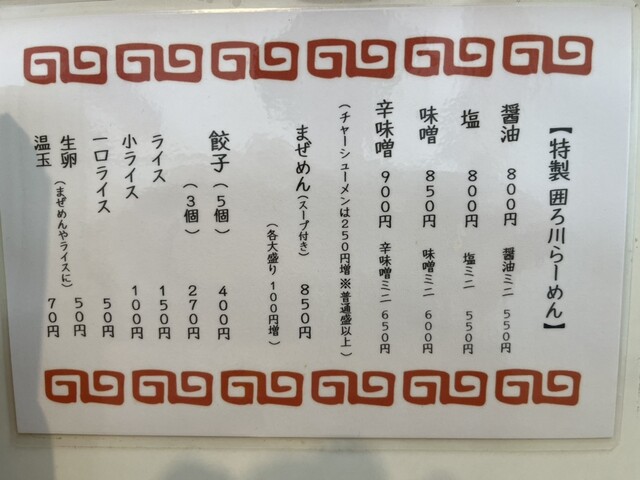 【特製 囲ろ川らーめん】
醤油 800円 醤油ミニ 550円
塩 800円 塩ミニ 550円
味噌 850円 味噌ミニ 600円
辛味噌 900円 辛味噌ミニ 650円
(チャーシューメンは250円増※普通盛以上)
まぜめん(スープ付き) 850円
(各大盛り 100円増)
餃子(5個) 400円
(3個) 270円
ライス 150円
小ライス 100円
一口ライス 50円
生卵(まぜめんやライスに) 50円
温玉 70円